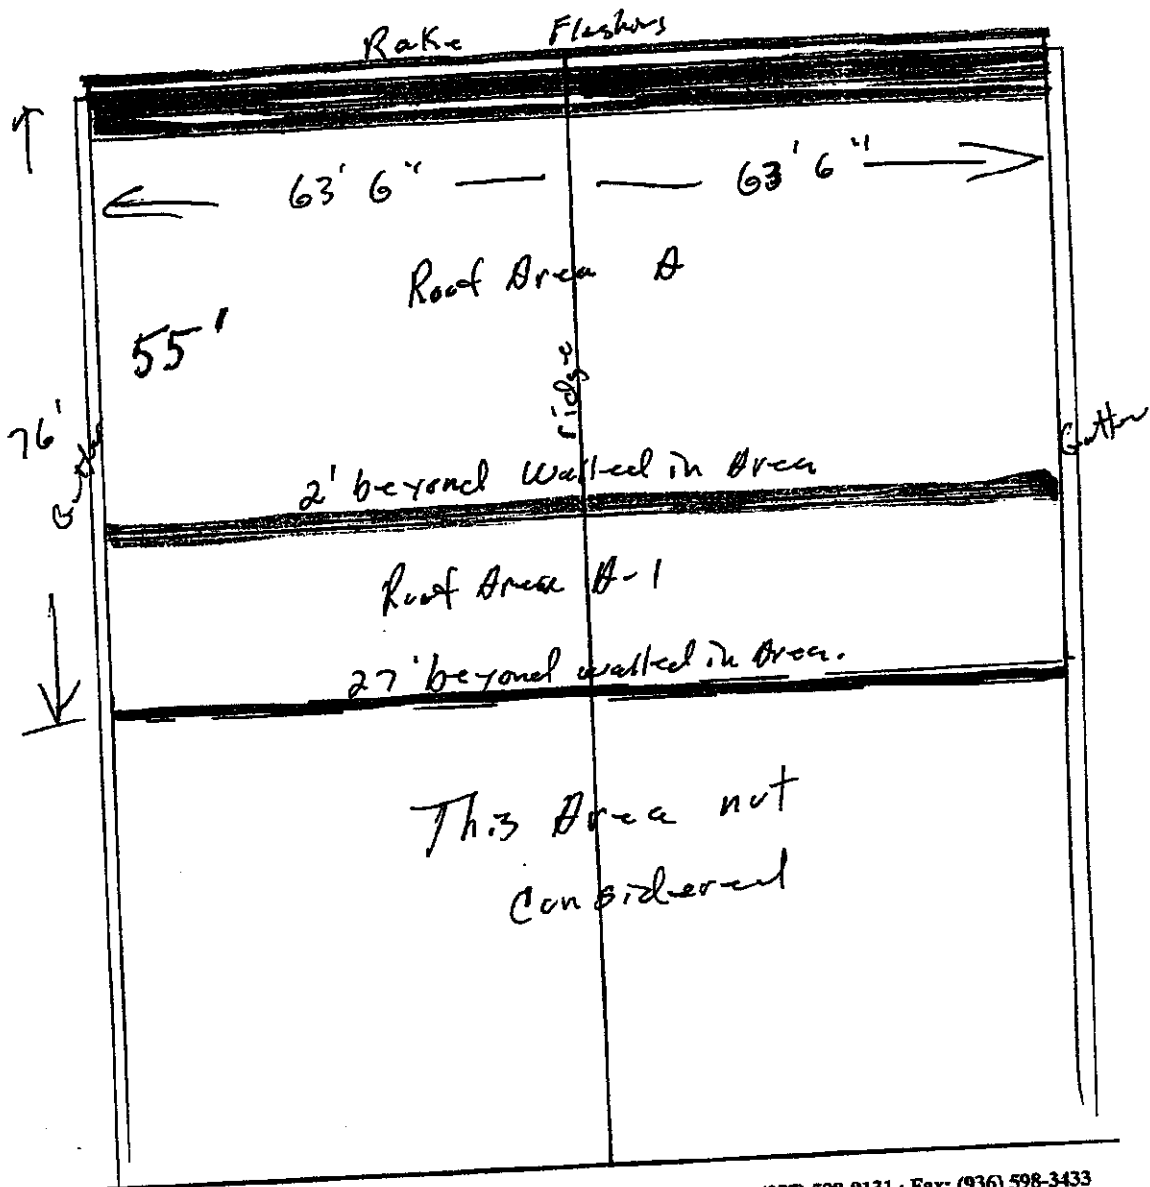 Rake Flashing
63' 6" 63' 6"
Roof Area A
55'
ridge
76'
Gutter
Gutter
2' beyond walled in Area
Roof Area A-1
27' beyond walled in Area.
This Area not
considered
598-9131 · Fax: (936) 598-3433